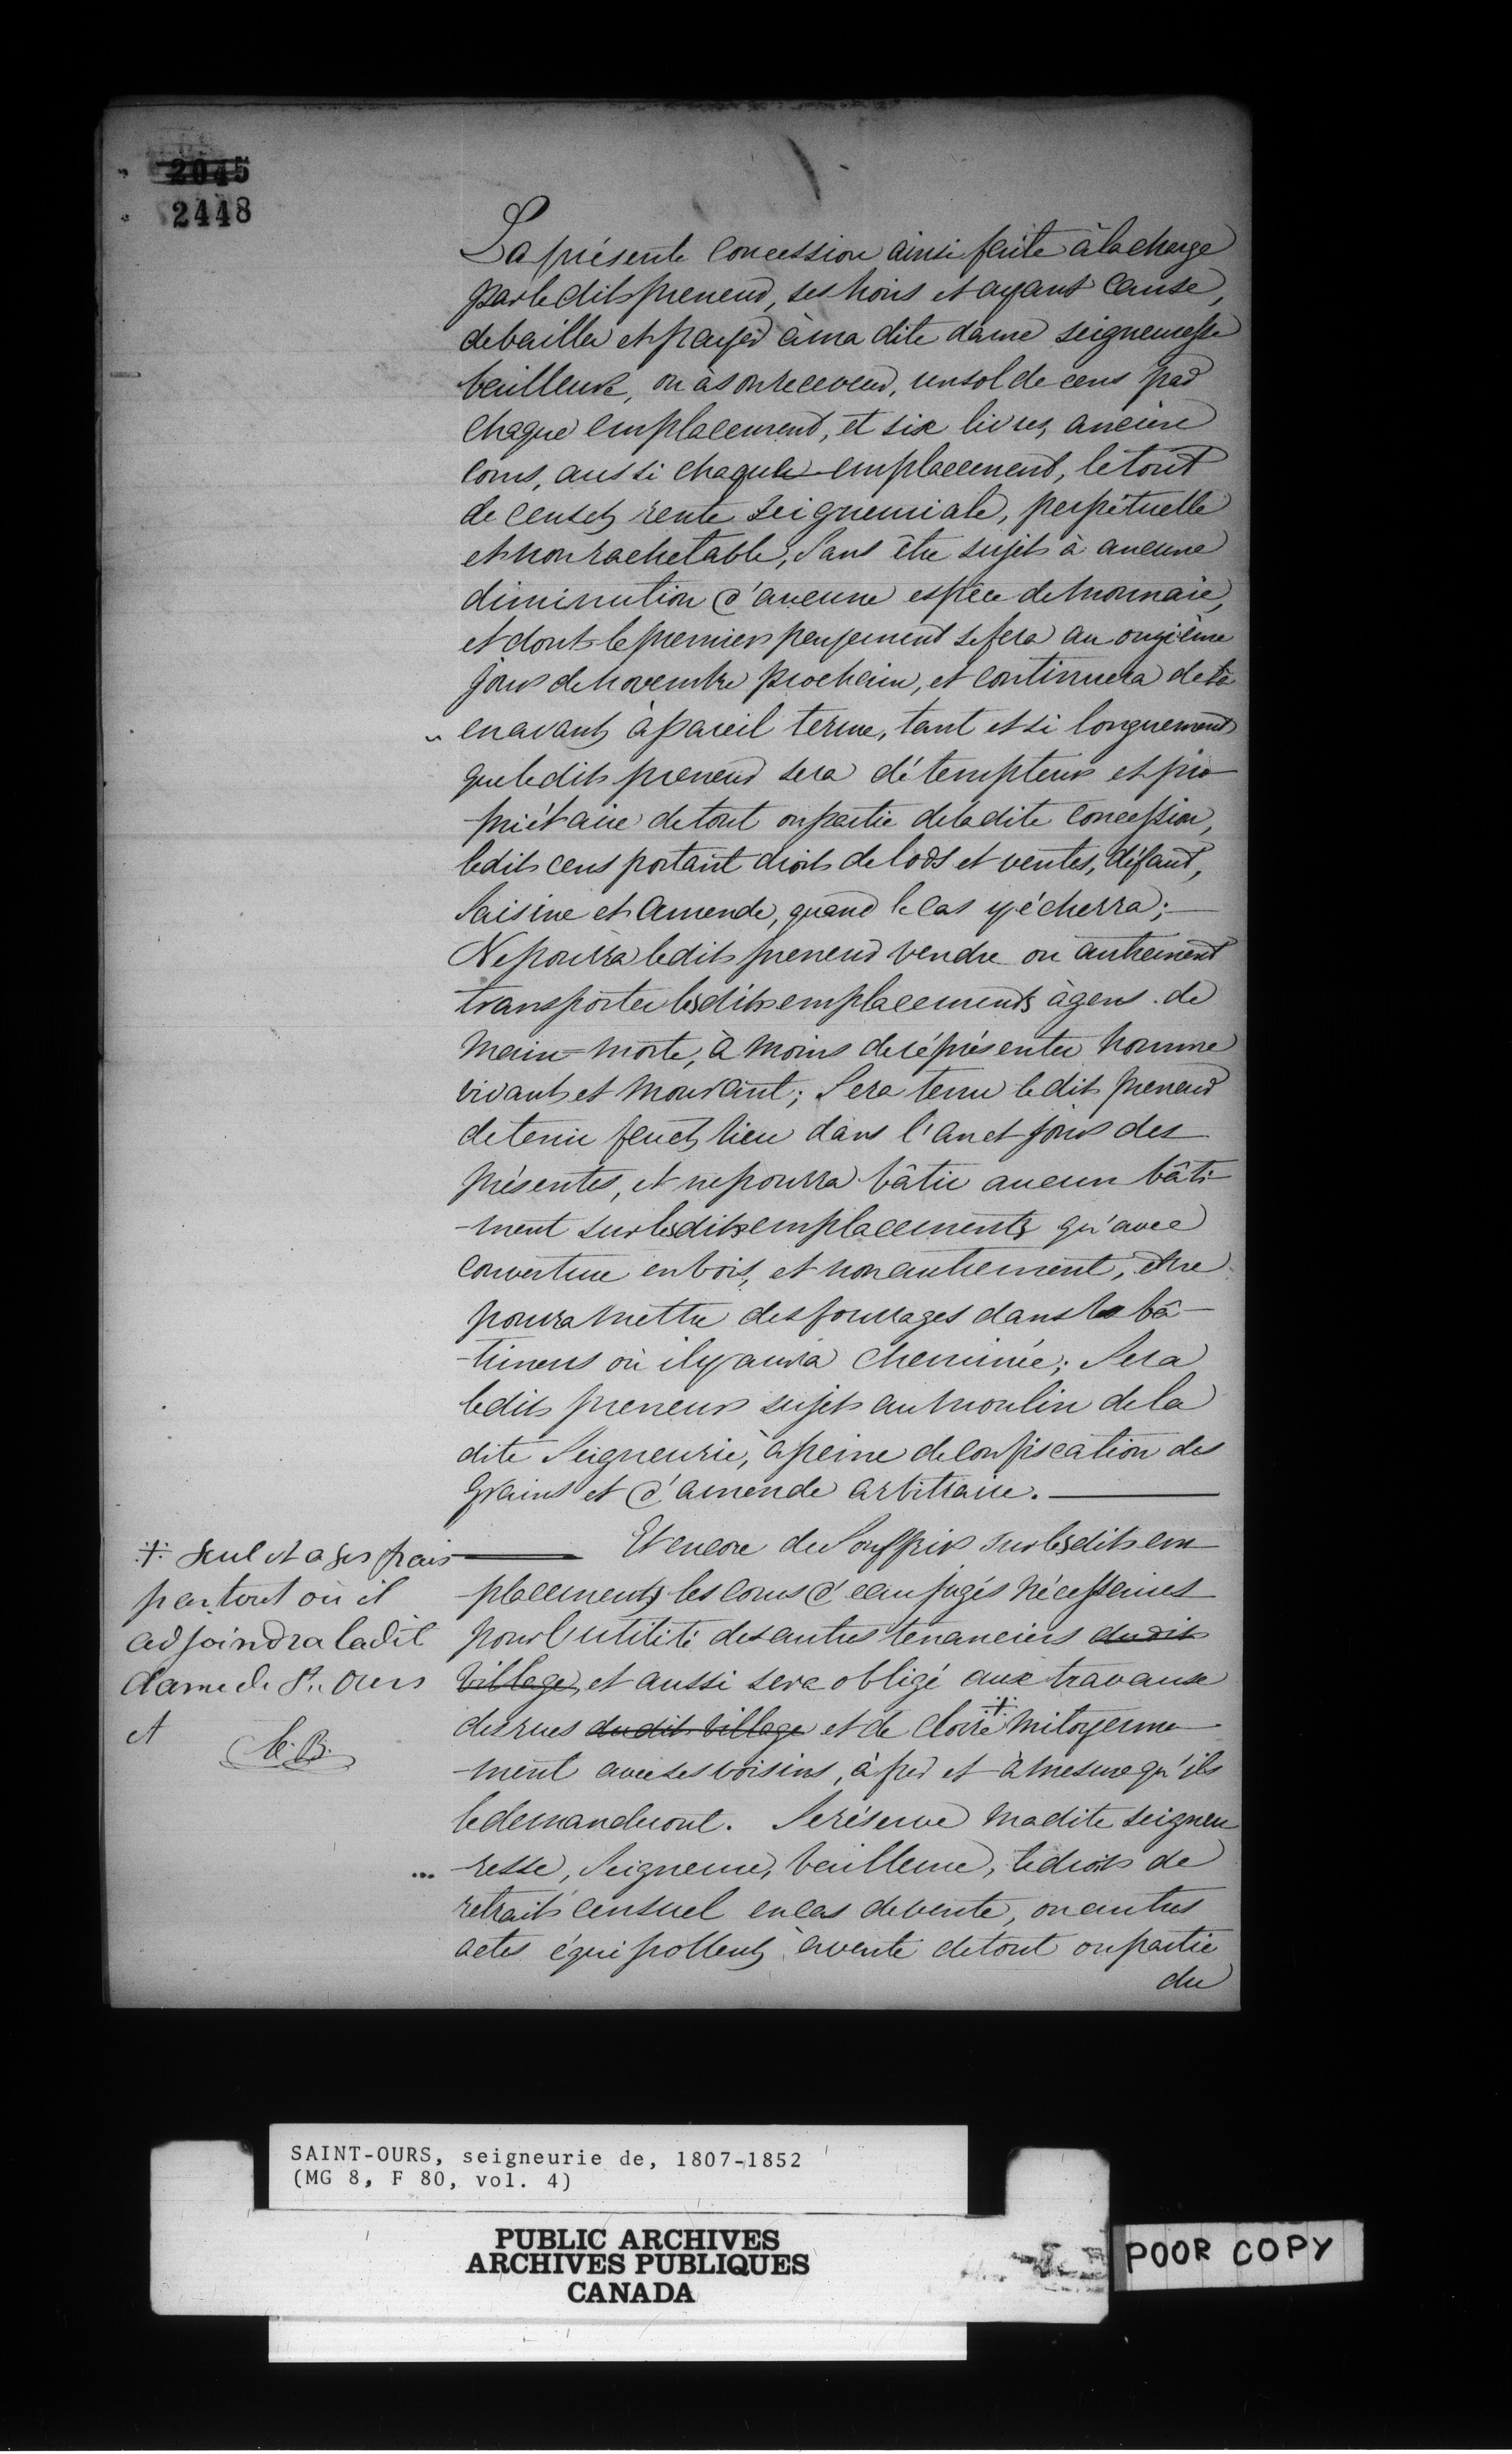 2045
2448
La présente Concession ainsi faite à la charge
par le dit preneur, ses hoirs et ayant Cause,
de bailler et payer à ma dite dame seigneuresse
bailleuse, ou à son receveur, un sol de cens par
chaque emplacement, et six livres, ancien
cours, aussi chaque emplacement, le tout
de cens et rente seigneuriale, perpétuelle
et non rachetable, sans être sujets à aucune
diminution d'aucune espèce de monnaie,
et dont le premier payement se fera au onzième
jour de novembre prochain, et continuera de là
en avant, à pareil terme, tant et si longuement
que le dit preneur sera détempteur et pro-
-priétaire de tout ou partie de la dite Concession,
le dit cens portant droit de lods et ventes, défaut,
saisine et amende, quand le cas y écherra;—
Ne pourra le dit preneur vendre ou autrement
transporter lesdits emplacements à gens de
main=morte, à moins de réprésenter homme
vivant et mourant; Sera tenu le dit preneur
de tenir feu et lieu dans l'an et jour des
présentes, et ne pourra bâtir aucun bâti-
-ment sur lesdits emplacements qu'avec
couverture en bois, et non autrement, et ne
pourra mettre des fourrages dans les bâ-
-timens où il y aura cheminée; Sera
le dit preneur sujet au moulin de la
dite Seigneurie, à peine de confiscation des
grains et d'amende arbitraire.—
Et encore de Souffrir sur lesdits em-
-placements les cours d'eau jugés nécessaires
pour l'utilité des autres tenanciers du dit
village, et aussi sera obligé aux travaux
des rues du dit village et de clorre ⁜ mitoyenne-
-ment avec ses voisins, à fur et à mesure qu'ils
le demanderont. Se réserve ma dite seigneu
-resse, Seigneur, bailleur, le droit de
retrait censuel en cas de vente, ou autres
actes équipollents à vente de tout ou partie
du
⁜ seul et a ses frais
partout où il
adjoindra ladit
dame de St. Ours
et
SAINT-OURS, seigneurie de, 1807-1852
(MG 8, F 80, vol. 4)
PUBLIC ARCHIVES
ARCHIVES PUBLIQUES
CANADA
POOR COPY